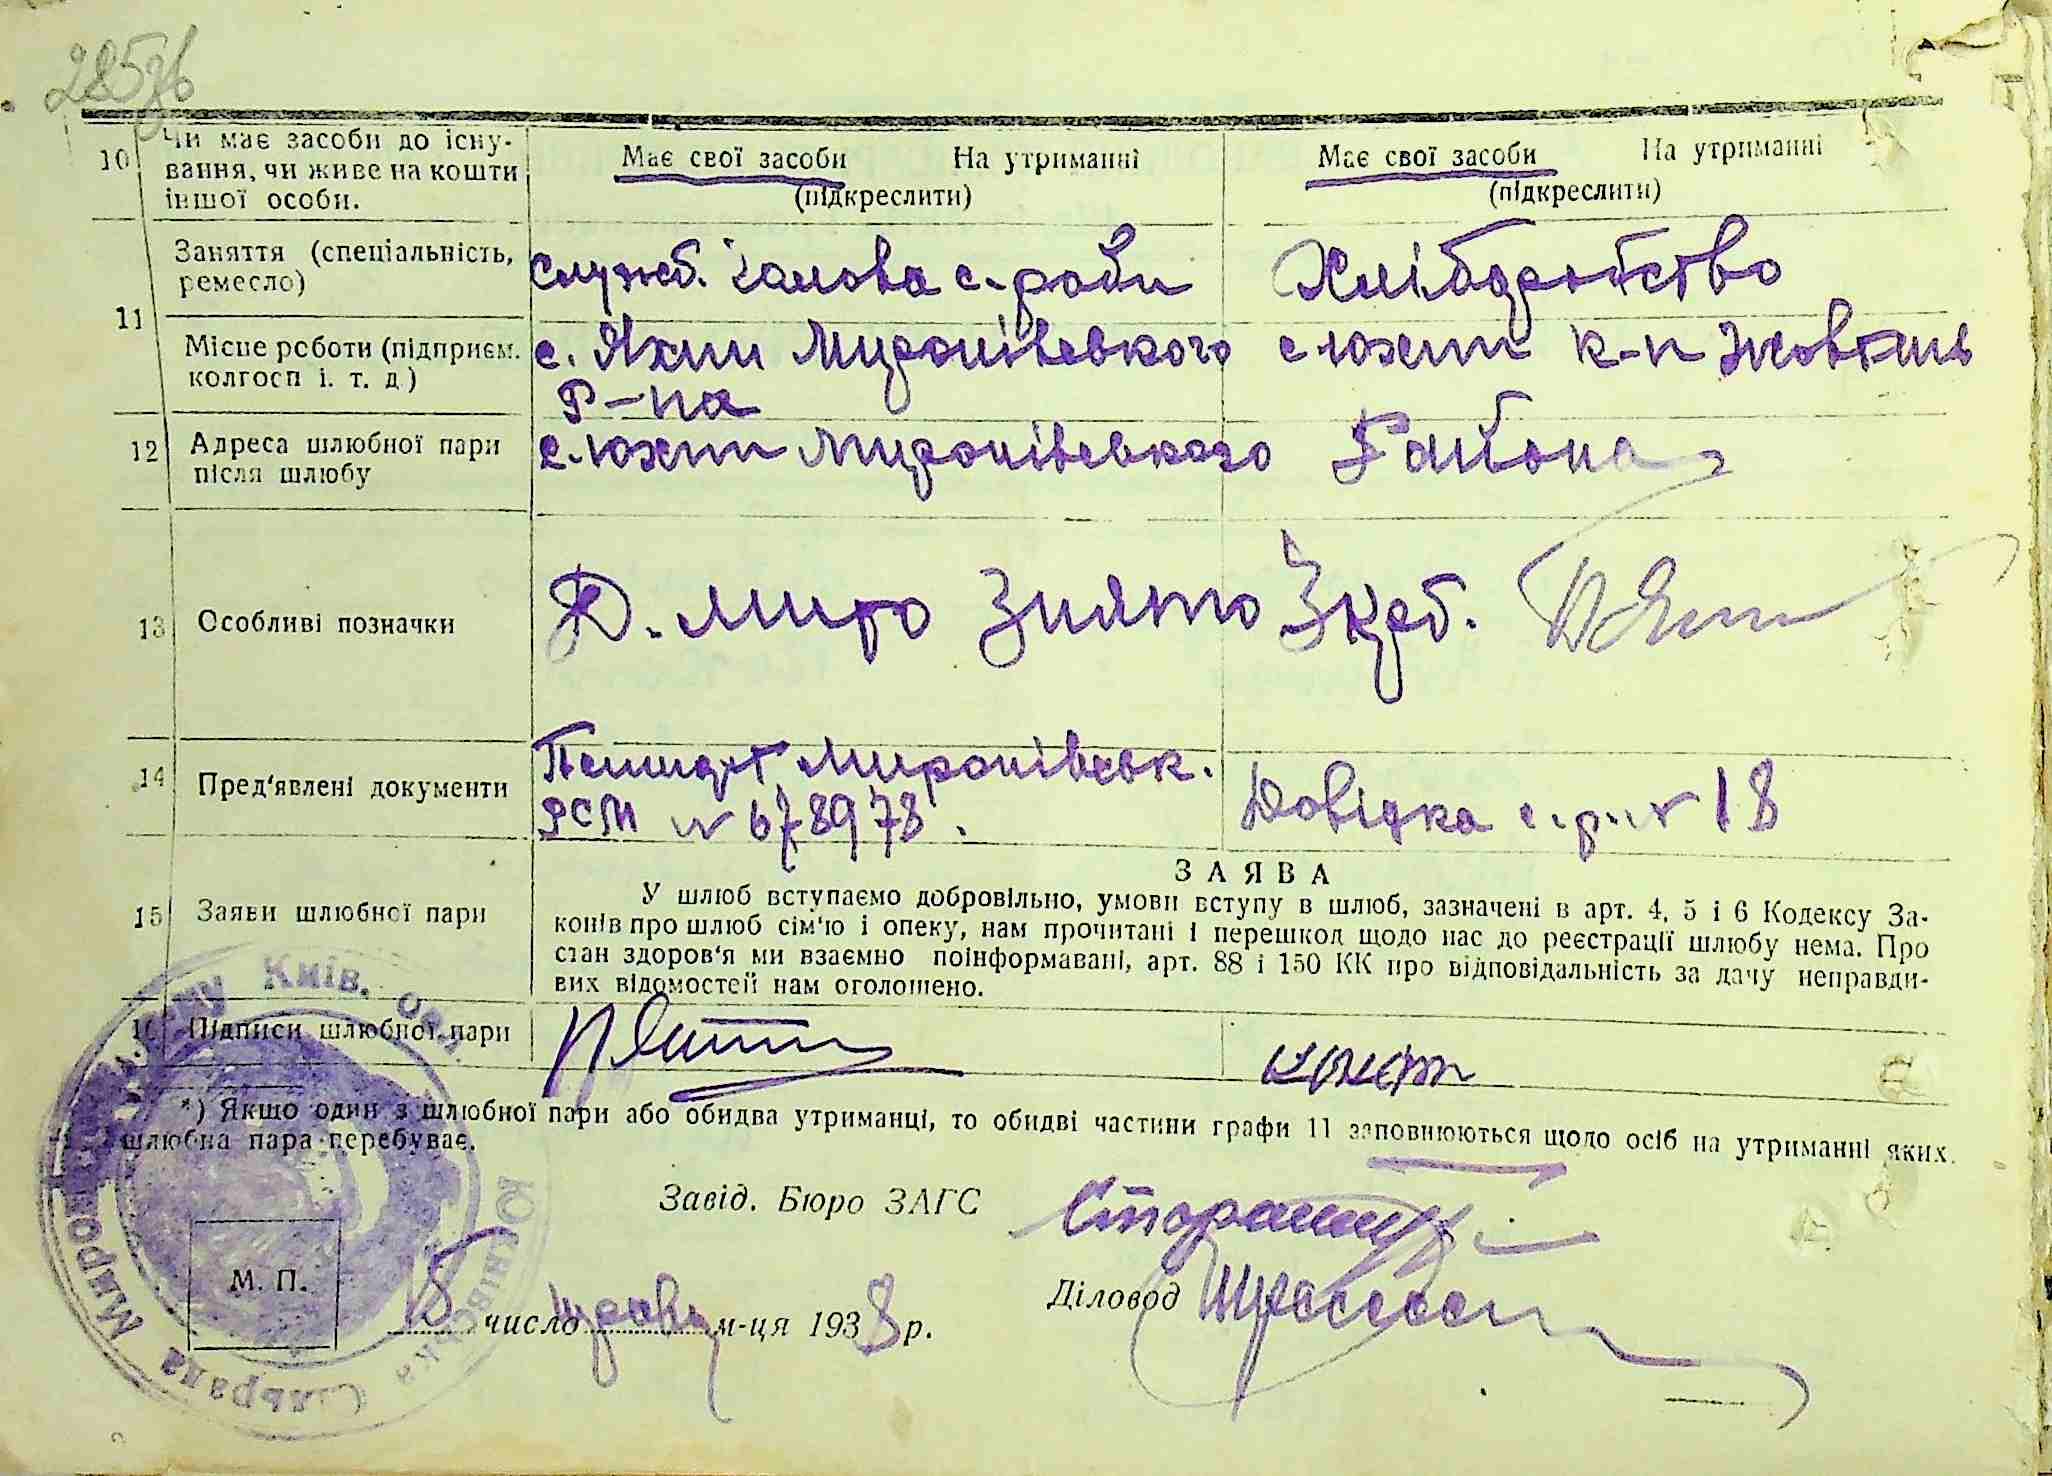 285зв
10 Чи має засоби до існу-
вання, чи живе на кошти
іншої особи.
Має свої засоби На утриманні
(підкреслити)
Має свої засоби На утриманні
(підкреслити)
11
Заняття (спеціальність,
ремесло)
служб. голова с-ради
Хліборобство
Місце роботи (підприєм.
колгосп і. т. д)
с. Яхни Миронівського
Р-на
с Юхни к-п Жовтень
12 Адреса шлюбної пари
після шлюбу
с. Юхни Миронівського Району
13 Особливі позначки
2 крб.
14 Пред'явлені документи
Миронівськ.
РСМ № 678978.
Довідка с.р. № 18
15 Заяви шлюбної пари
ЗАЯВА
У шлюб вступаємо добровільно, умови вступу в шлюб, зазначені в арт. 4, 5 і 6 Кодексу За-
конів про шлюб сім'ю і опеку, нам прочитані і перешкод щодо нас до реєстрації шлюбу нема. Про
стан здоров'я ми взаємно поінформавані, арт. 88 і 150 КК про відповідальність за дачу неправди-
вих відомостей нам оголошено.
16 Підписи шлюбної пари
*) Якщо один з шлюбної пари або обидва утриманці, то обидві частини графи 11 заповнюються щодо осіб на утриманні яких
шлюбна пара перебуває.
Завід. Бюро ЗАГС
Діловод
М. П.
15 число травн м-ця 1938 р.
Київ. Обл.
Сільрада